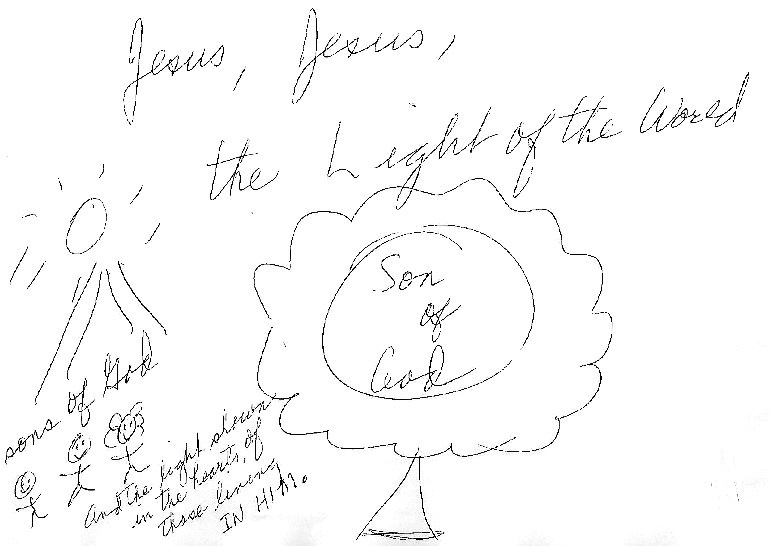 Jesus, Jesus,
the Light of the World
Son
of
God
sons of God
and the light shewn
in the hearts, of
those living
IN HIM.